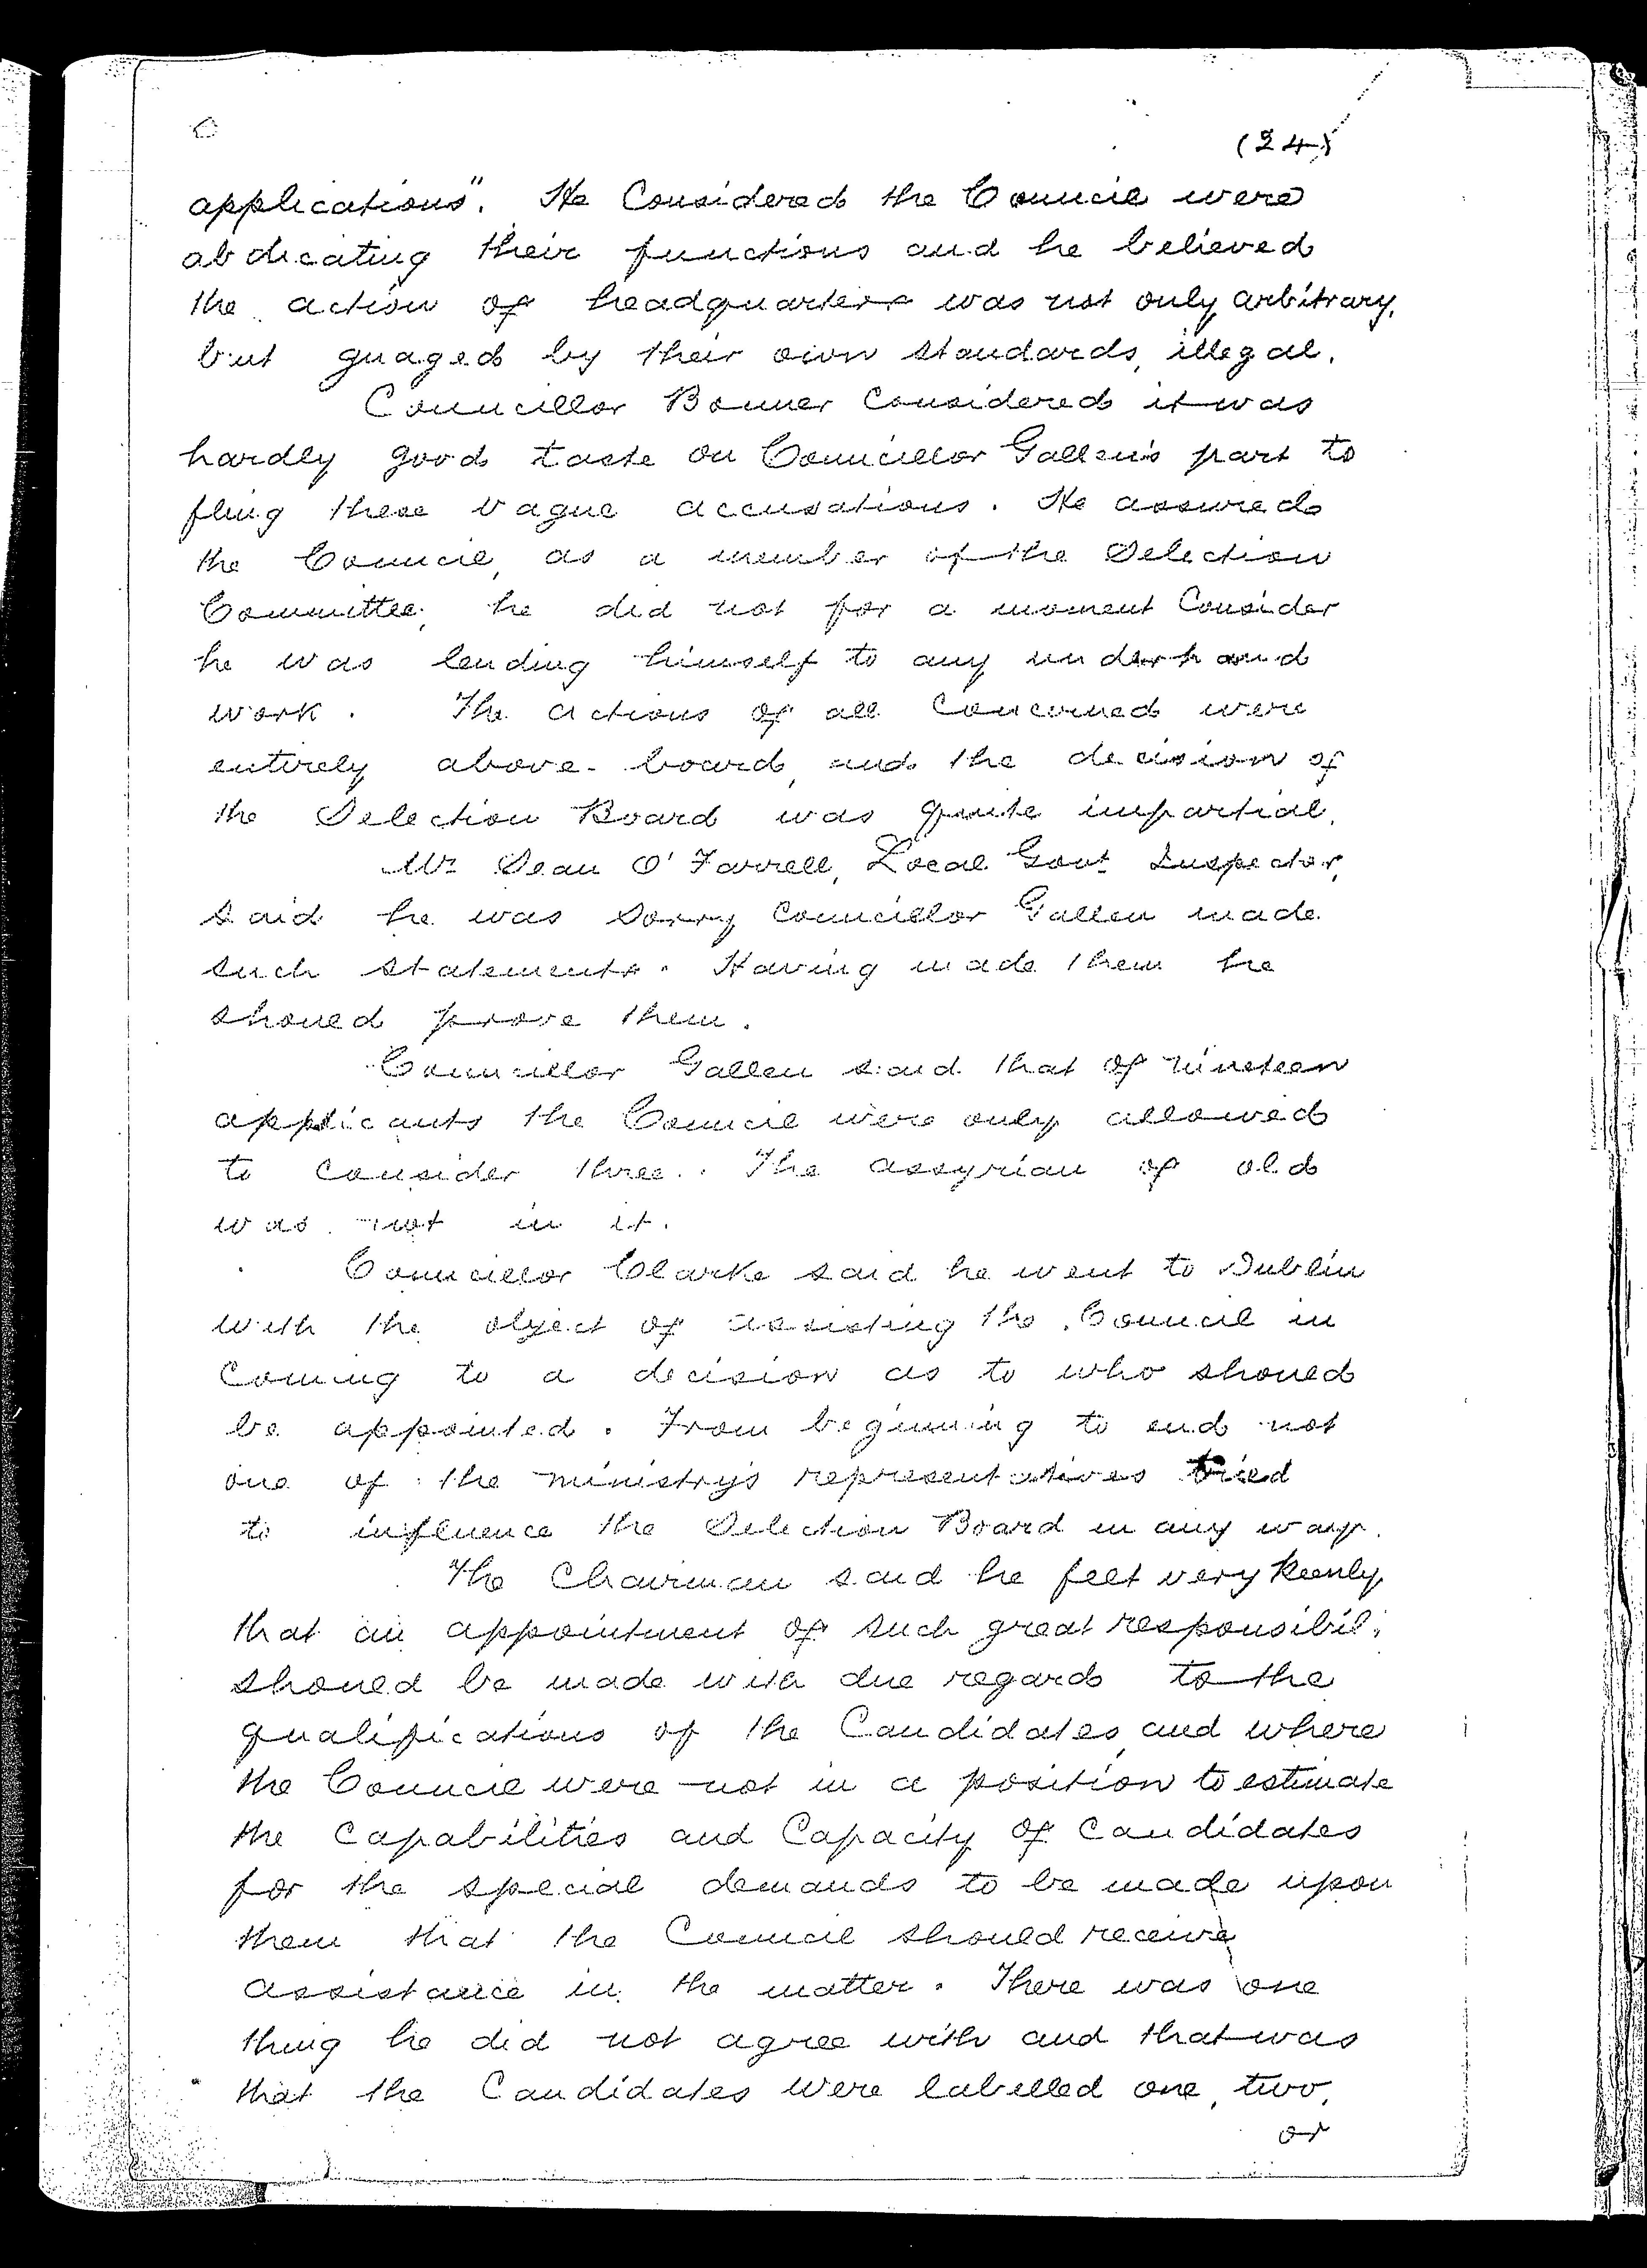 (24)
applications". He Considered the Council were
abdicating their functions and he believed
the action of headquarters was not only arbitrary,
but guaged by their own standards, illegal.
Councillor Bonner Considered it was
hardly good taste on Councillor Gallen's part to
fling these vague accusations. He assured
the Council, as a member of the Selection
Committee, he did not for a moment Consider
he was lending himself to any underhand
work. The actions of all Concerned were
entirely above-board, and the decision of
the Selection Board was quite impartial.
Mr Sean O'Farrell, Local Govt Inspector,
said he was sorry Councillor Gallen made
such statements. Having made them he
should prove them.
Councillor Gallen said that of nineteen
applicants the Council were only allowed
to consider three. The assyrian of old
was not in it.
Councillor Clarke said he went to Dublin
with the object of assisting the Council in
Coming to a decision as to who should
be appointed. From beginning to end not
one of the ministry's representatives tried
to influence the Selection Board in any way.
The Chairman said he felt very keenly
that an appointment of such great responsibil
should be made with due regard to the
qualifications of the Candidates, and where
the Council were not in a position to estimate
the Capabilities and Capacity of Candidates
for the special demands to be made upon
them that the Council should receive
assistance in the matter. There was one
thing he did not agree with and that was
that the Candidates were labelled one, two,
or